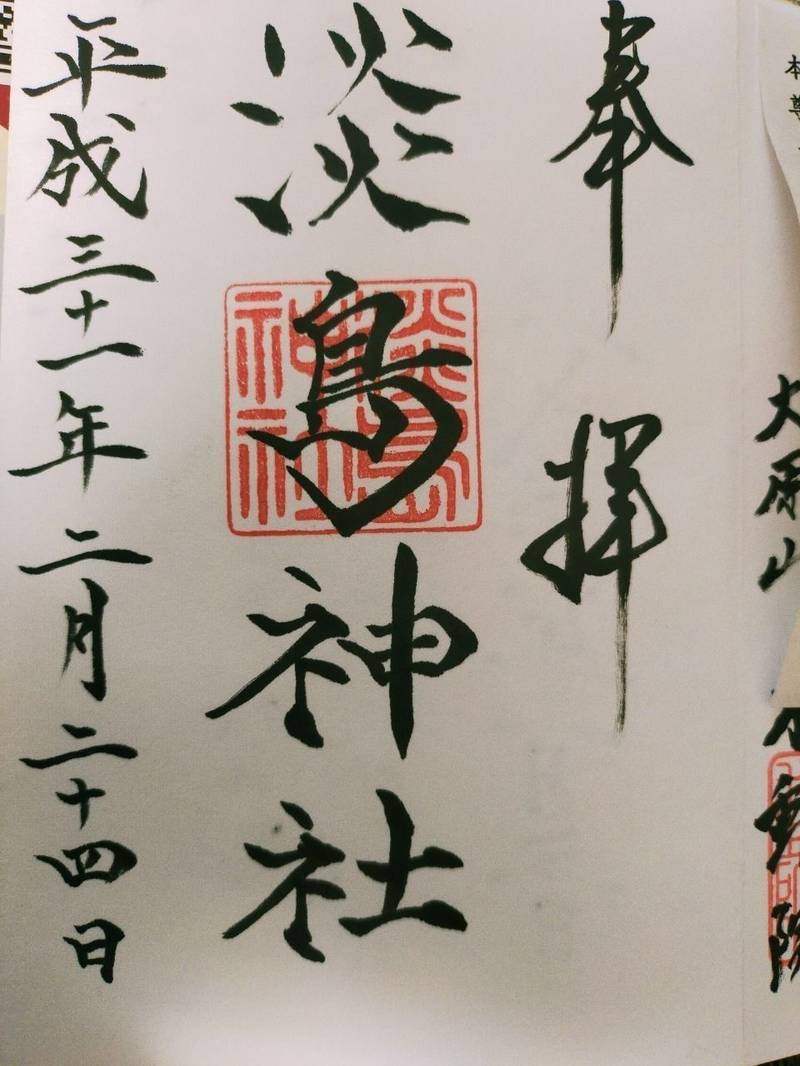 奉拝
淡嶋神社
淡嶋神社
平成三十一年二月二十四日
本尊
大原山
動院